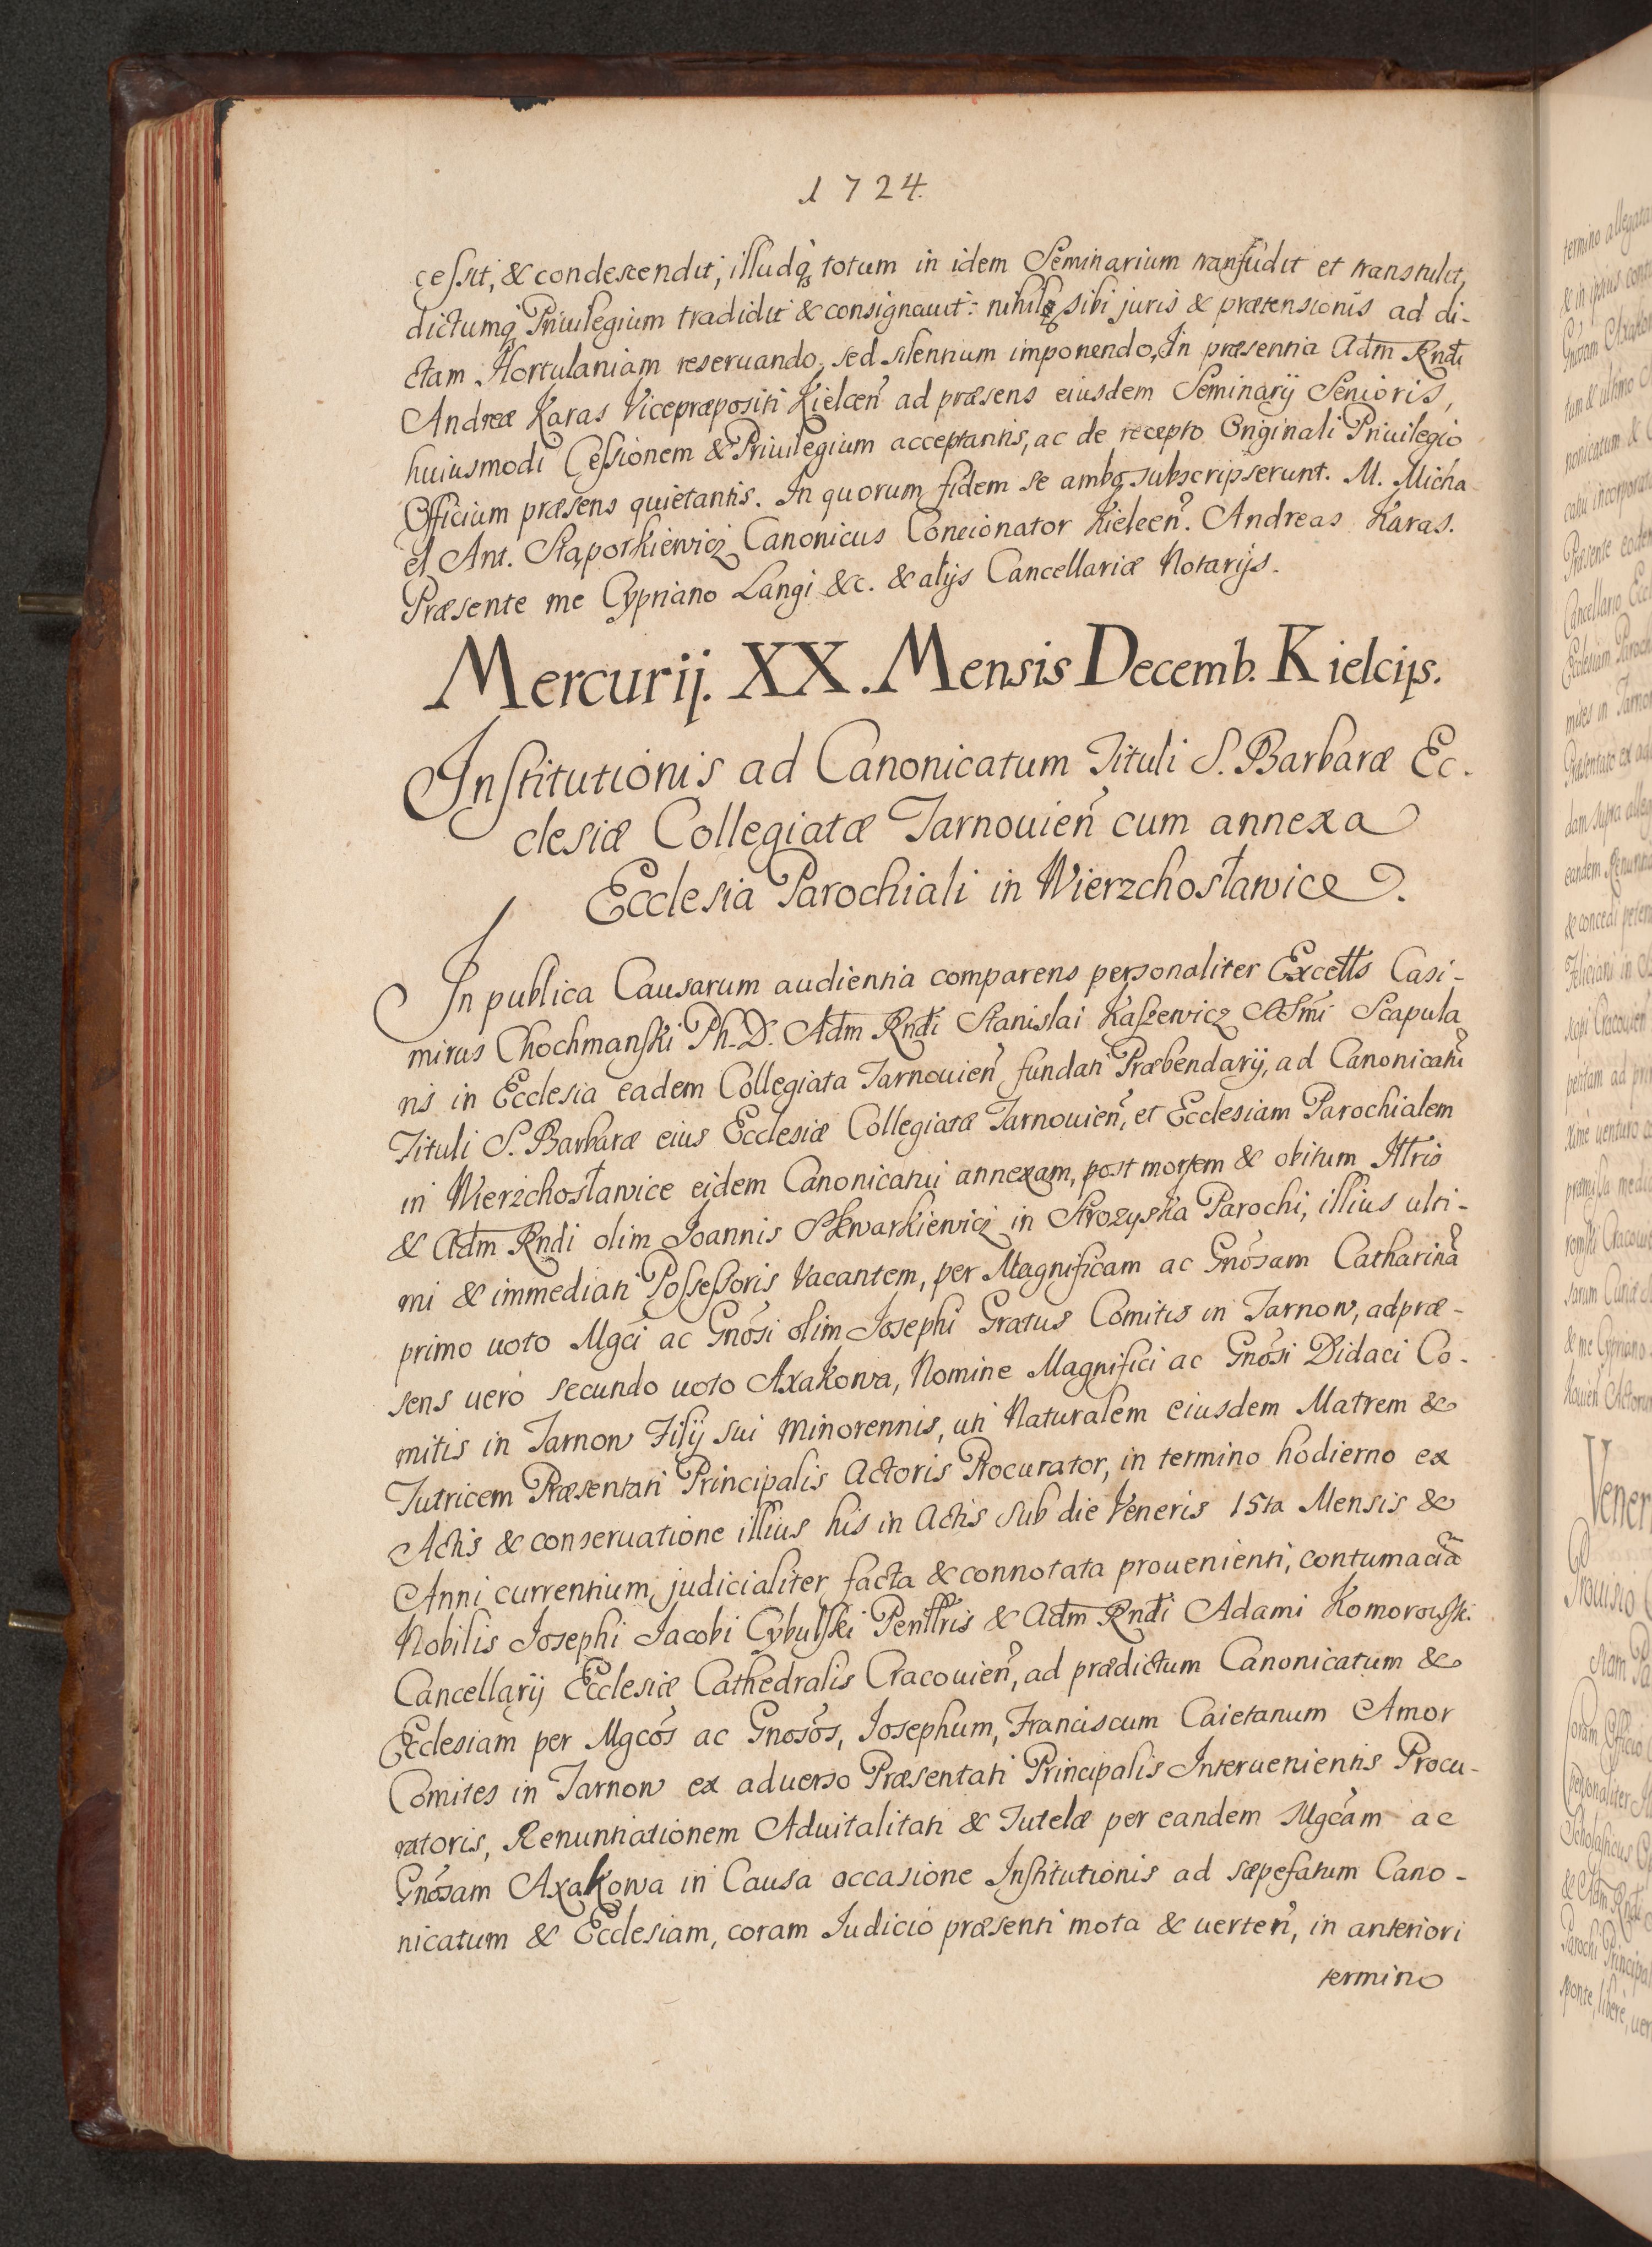 1724.
cessit, & condescendit, illudq₃ totum in idem Seminarium transfudit et transtulit,
dictumq₃ Priuilegium tradidit & consignauit: nihilq₃ sibi juris & prætensionis ad di-
ctam Hortulaniam reseruando, sed silentium imponendo, In præsentia Adm Rndi
Andreæ Karas Vicepræpositi Kielcen̄ ad præsens eiusdem Seminarij Senioris,
huiusmodi Cessionem & Priuilegium acceptantis, ac de recepto Originali Priuilegio
Officium præsens quietantis. In quorum fidem se ambo subscripserunt. M. Micha
el Ant. Stapotkiewicz Canonicus Concionator Kielcen̄. Andreas Karas.
Præsente me Cypriano Langi &c. & alijs Cancellariæ Notarijs.
Mercurij. XX. Mensis Decemb. Kielcijs.
Institutionis ad Canonicatum Tituli S. Barbaræ Ec-
clesiæ Collegiatæ Tarnouien̄ cum annexa
Ecclesia Parochiali in Wierzchosławice.
In publica Causarum audientia comparens personaliter Excells Casi-
mirus Chochmanski Ph. D. Adm Rndi Stanislai Kaszewicz Assmi Scapula
ris in Ecclesia eadem Collegiata Tarnouien̄ fundati Præbendarij, ad Canonicatū
Tituli S. Barbaræ eius Ecclesiæ Collegiatæ Tarnouien̄, et Ecclesiam Parochialem
in Wierzchosławice eidem Canonicatui annexam, post mortem & obitum Illtris
& Adm Rndi olim Joannis Skwarkiewicz in Strozyska Parochi, illius ulti-
mi & immediati Possessoris Vacantem, per Magnificam ac Gnosam Catharinā
primo uoto Mgci ac Gnosi olim Josephi Gratus Comitis in Tarnow, ad præ-
sens uerò secundo uoto Axakowa, Nomine Magnifici ac Gnosi Didaci Co-
mitis in Tarnow Filij sui Minorennis, uti Naturalem eiusdem Matrem &
Tutricem Præsentati Principalis Actoris Procurator, in termino hodierno ex
Actis & conseruatione illius his in Actis sub die Veneris 15ta Mensis &
Anni currentium, judicialiter facta & connotata prouenienti, contumaciā
Nobilis Josephi Jacobi Cybulski Penllris & Adm Rndi Adami Komorowski
Cancellarij Ecclesiæ Cathedralis Cracouien̄, ad prædictum Canonicatum &
Ecclesiam per Mgcos ac Gnosos, Josephum, Franciscum Caietanum Amor
Comites in Tarnow ex aduerso Præsentati Principalis Interuenientis Procu-
ratoris, Renuntiationem Aduitalitati & Tutelæ per eandem Mgcam ac
Gnosam Axakowa in Causa occasione Institutionis ad sæpefatum Cano-
nicatum & Ecclesiam, coram Iudicio præsenti mota & uerten̄, in anteriori
termino